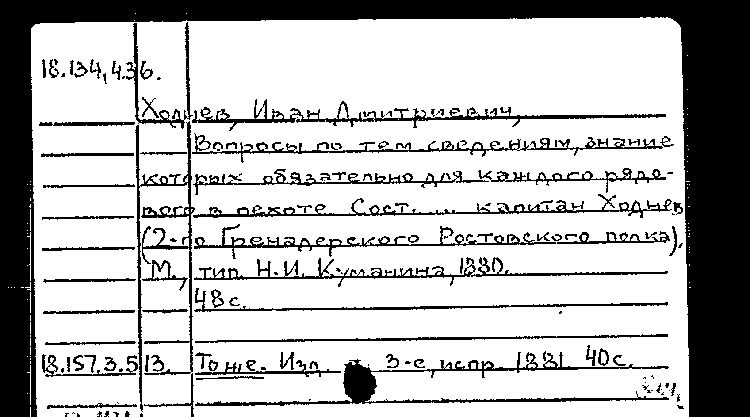 18.134.4.36.
Ходнев, Иван Дмитриевич,
Вопросы по тем сведениям, знание
которых обязательно для каждого рядо-
вого в пехоте. Сост. ... капитан Ходнев
(2-го Гренадерского Ростовского полка).
М., тип. Н.И. Куманина, 1880.
48 с.
18.157.3.513. То же. Изд. 3-е, испр. 1881. 40 с.